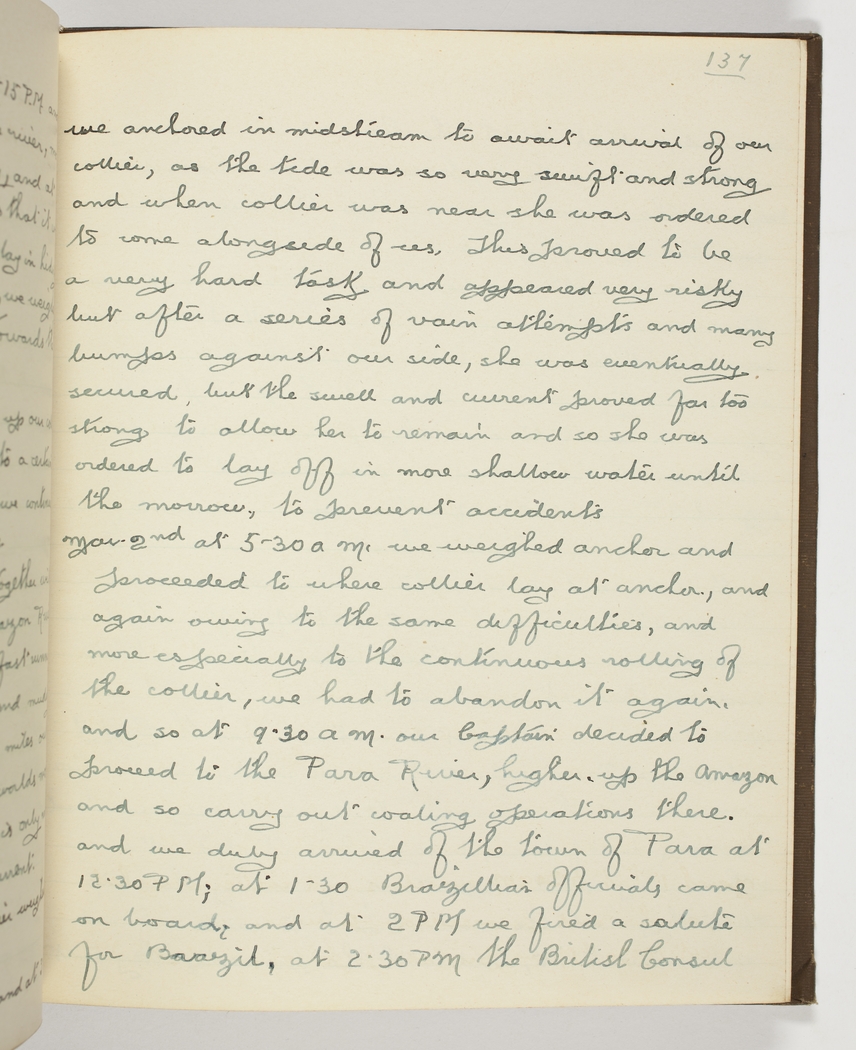 137
we anchored in midstream to await arrival of our
collier, as the tide was so very swift and strong
and when collier was near she was ordered
to come alongside of us. This proved to be
a very hard task and appeared very risky
but after a series of vain attempts and many
bumps against our side, she was eventually.
secured, but the swell and current proved far too
strong to allow her to remain and so she was
ordered to lay off in more shallow water until
the morrow, to prevent accidents
Mar. 2nd at 5-30 a m. we weighed anchor and
proceeded to where collier lay at anchor, and
again owing to the same difficulties, and
more especially to the continuous rolling of
the collier, we had to abandon it again.
and so at 9.30 a m. our Captain decided to
proceed to the Para River, higher. up the Amazon
and so carry out coaling operations there.
and we duly arrived off the town of Para at
12.30 P M; at 1-30 Braizillian officials came
on board; and at 2 P M we fired a salute
for Baazil, at 2.30 P M the British Consul
15 P.M. an
river,
and at
that it
lay in
we weig
towards
up our
to a
we
ogether
azon
fast
and
miles
is only
urrent.
and at